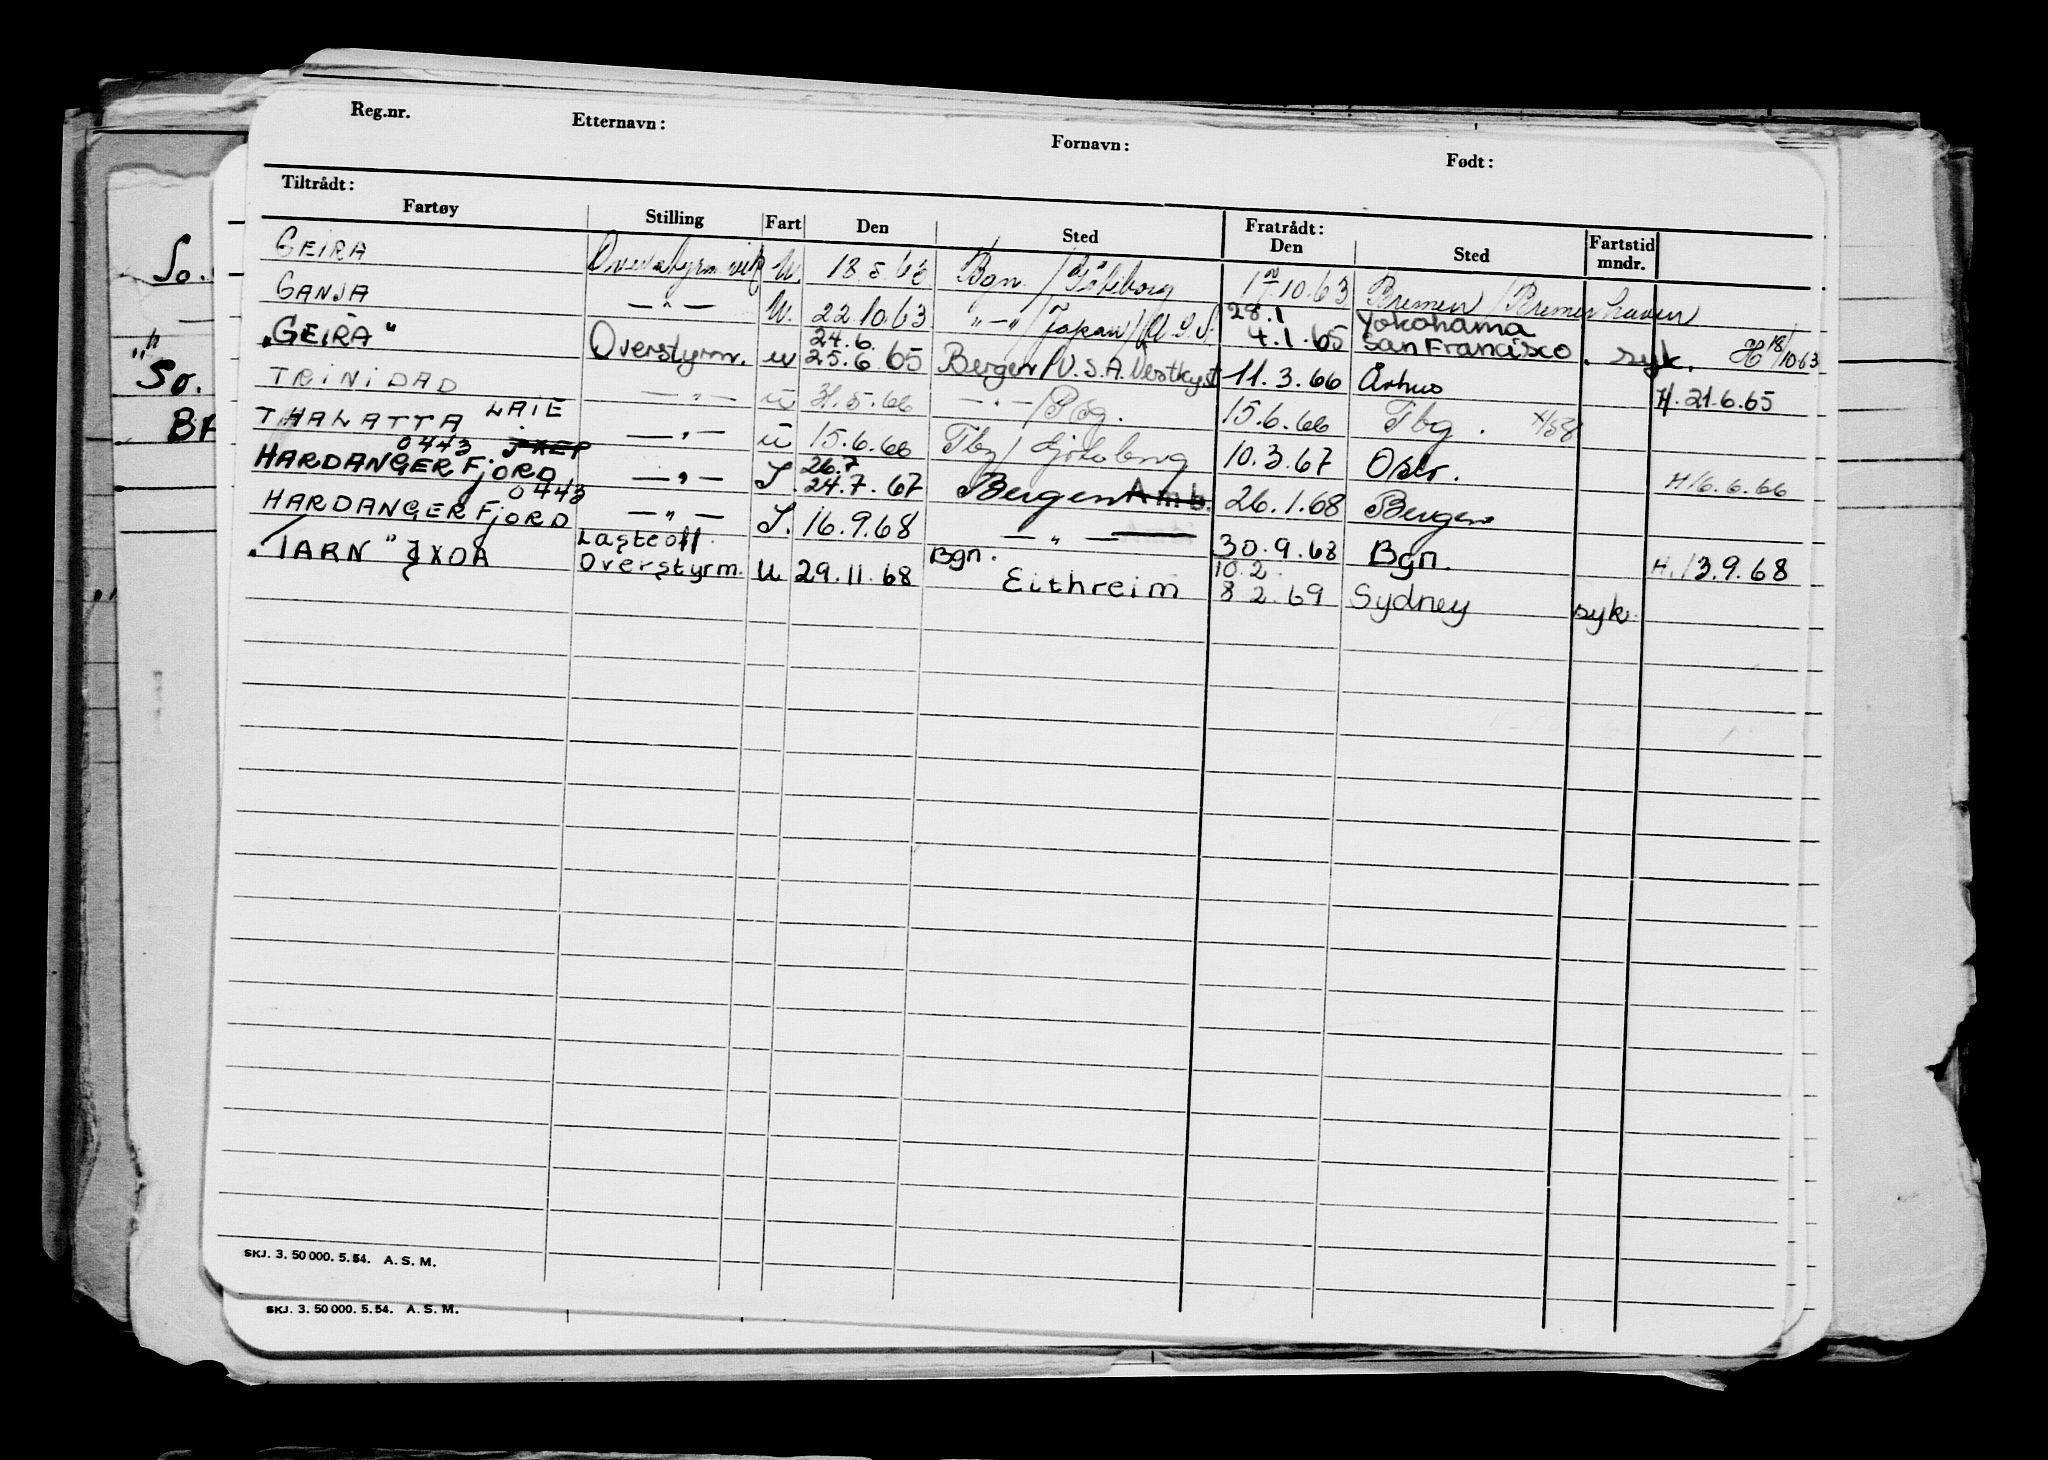 Reg.nr. Etternavn: Fornavn: Født:
Tiltrådt: Fratrådt:
Fartøy Stilling Fart Den Sted Den Sted Fartstid mndr.
GEIRA Overstyrm. vik U 18.5.63 Bgn. / Göteborg 17.10.63 Bremen / Bremerhaven
GANJA — " — U. 22.10.63 " — " / Japan / U.S.A. 28.1 Yokohama
"GEIRA" Overstyrm. u 24.6. 25.6.65 Bergen / U.S.A. Vestkyst 4.1.65 San Francisco . syk. H 18/10 63
TRINIDAD — " — u 31.5.66 — " — / 11.3.66 Århus H. 21.6.65
THALATTA LAIE — " — u 15.6.66 Tbg / Gjøteberg 15.6.66 Tbg.
0443 JXEP
HARDANGERFJORD — " — S. 26.7 24.7.67 Bergen Amb. 10.3.67 Oslo. H 16.6.66
0443
HARDANGERFJORD — " — S. 16.9.68 — " — 26.1.68 Bergen
Lasteoff. Bgn. 30.9.68 Bgn. H. 13.9.68
"TARN" JXOA Overstyrm. U 29.11.68 Eithreim 10.2 8.2.69 Sydney syk.
So.
"
So.
SKJ. 3. 50 000. 5. 54. A. S. M.
SKJ. 3. 50 000. 5. 54. A. S. M.